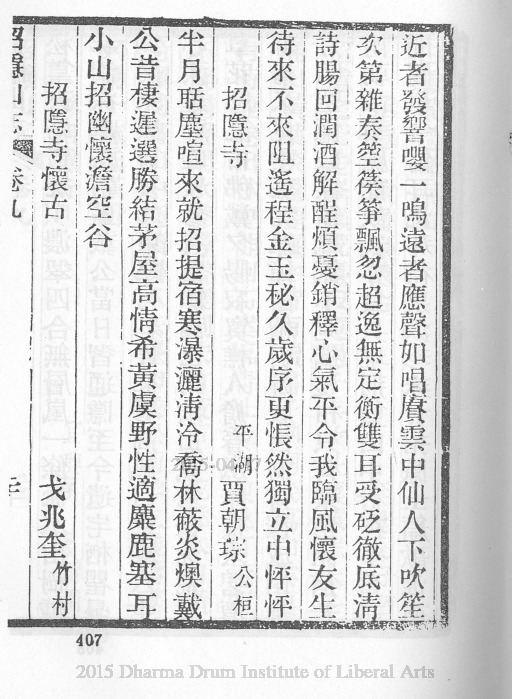 近者發響嚶一鳴遠者應聲如唱賡雲中仙人下吹笙
次第雜奏箜篌箏飄忽超逸無定衡雙耳受砭徹底清
詩腸回潤酒解酲煩憂銷釋心氣平令我臨風懷友生
待來不來阻遙程金玉秘久歲序更悵然獨立中怦怦
招隱寺 平湖賈朝琮公桓
半月聒塵喧來就招提宿寒瀑灑清泠喬林蔽炎燠戴
公昔棲遲選勝結茅屋高情希黃虞野性適麋鹿塞耳
小山招幽懷澹空谷
招隱寺懷古 戈兆奎竹村
招隱山志 卷九
407
2015 Dharma Drum Institute of Liberal Arts